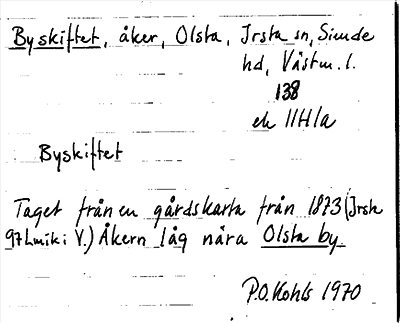 Byskiftet, åker, Olsta, Irsta sn, Siende
hd, Västm. l.
138
ek 11H1a
Byskiftet
Taget från en gårdskarta från 1873 (Irsta
97 Lmäk: V.) Åkern låg nära Olsta by
P.O. Kohls 1970